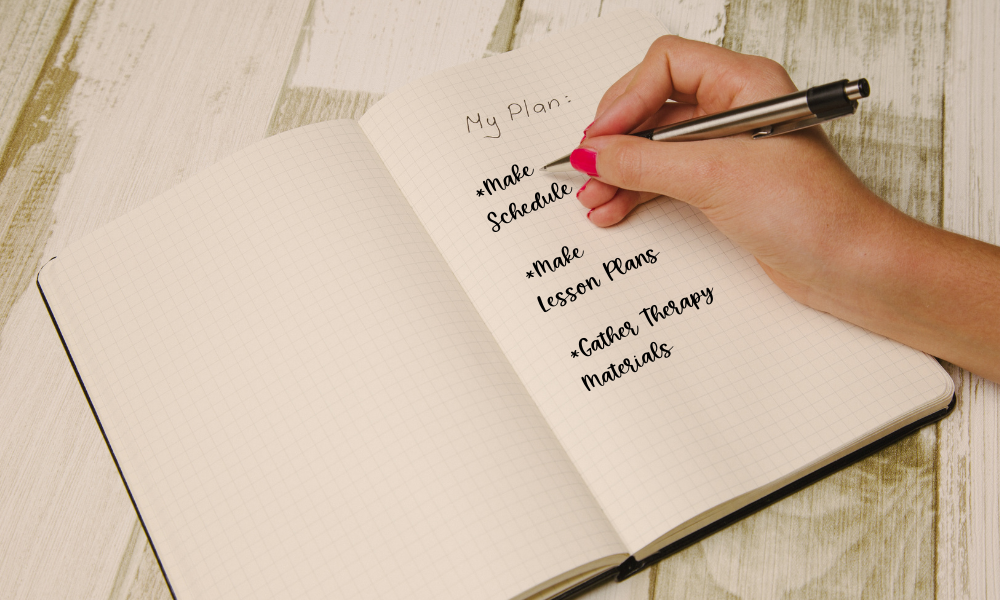 My Plan:
*Make
Schedule
*Make
Lesson Plans
*Gather Therapy
Materials